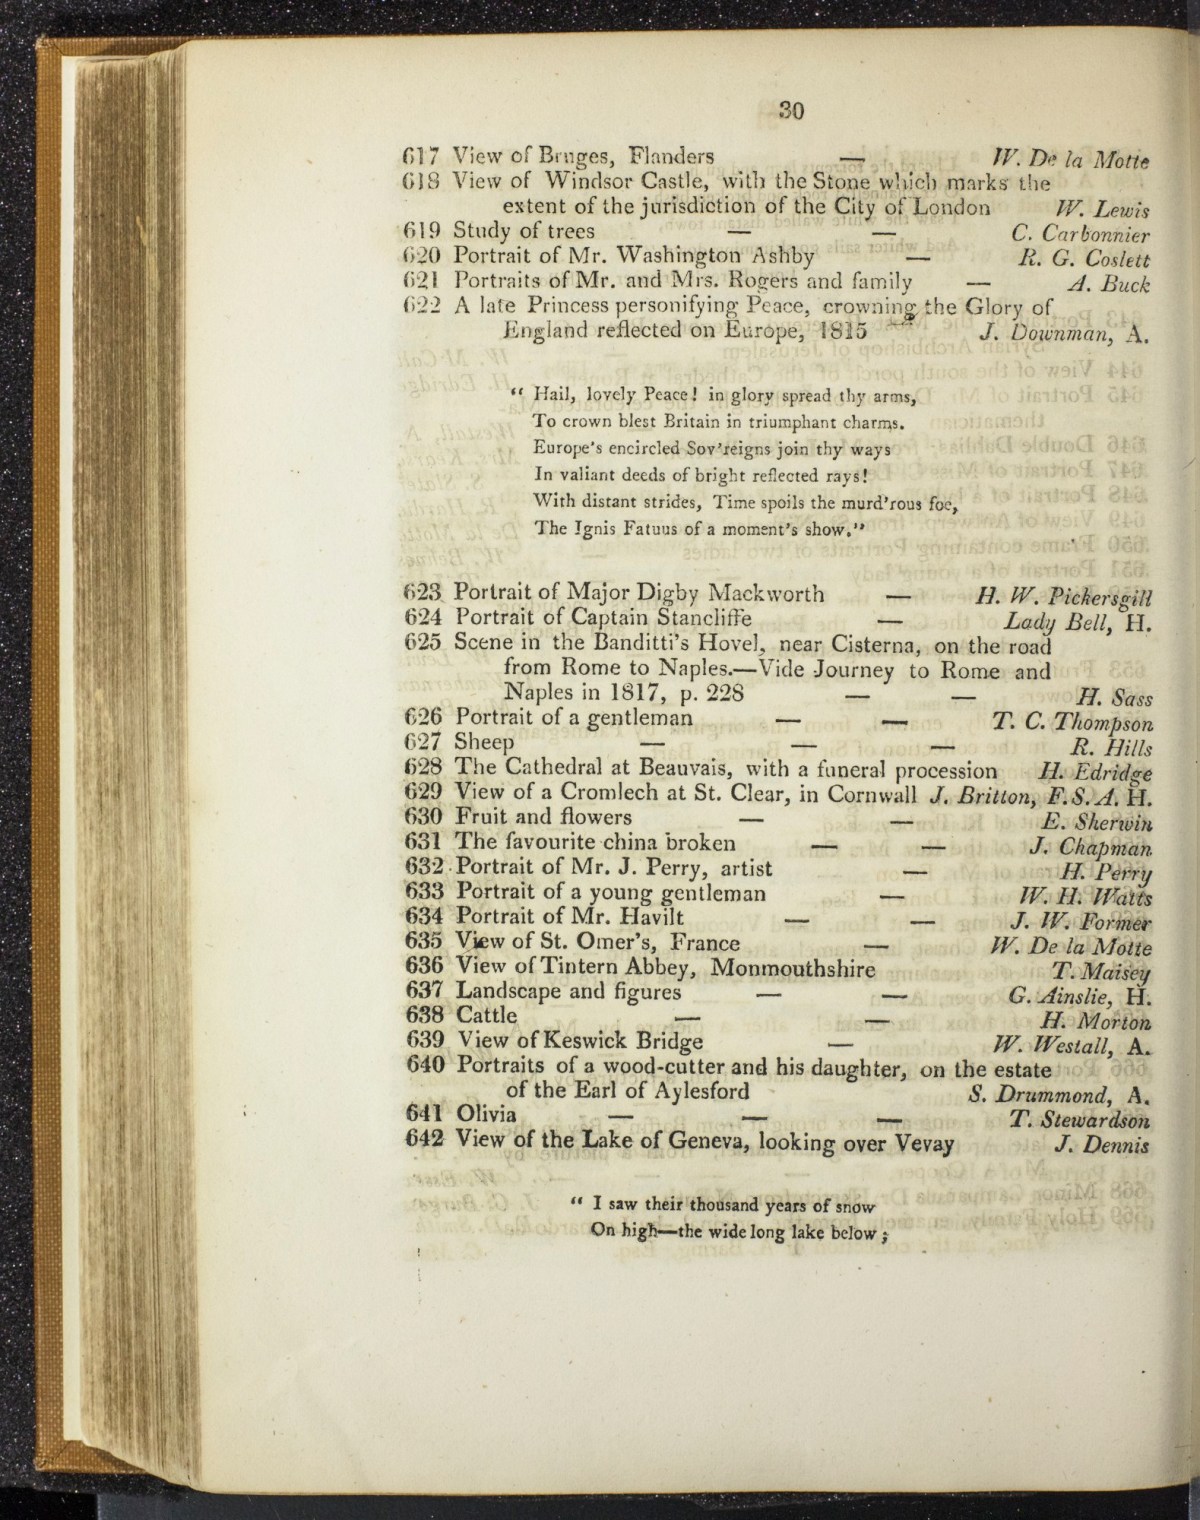 30
617 View of Bruges, Flanders — W. De la Motte
618 View of Windsor Castle, with the Stone which marks the
extent of the jurisdiction of the City of London W. Lewis
619 Study of trees — — C. Carbonnier
620 Portrait of Mr. Washington Ashby — R. G. Coslett
621 Portraits of Mr. and Mrs. Rogers and family — A. Buck
622 A late Princess personifying Peace, crowning the Glory of
England reflected on Europe, 1815 — J. Downman, A.
“ Hail, lovely Peace! in glory spread thy arms,
To crown blest Britain in triumphant charms.
Europe's encircled Sov'reigns join thy ways
In valiant deeds of bright reflected rays!
With distant strides, Time spoils the murd'rous foe,
The Ignis Fatuus of a moment's show.”
623 Portrait of Major Digby Mackworth — H. W. Pickersgill
624 Portrait of Captain Stancliffe — Lady Bell, H.
625 Scene in the Banditti's Hovel, near Cisterna, on the road
from Rome to Naples.—Vide Journey to Rome and
Naples in 1817, p. 228 — — H. Sass
626 Portrait of a gentleman — — T. C. Thompson
627 Sheep — — — R. Hills
628 The Cathedral at Beauvais, with a funeral procession H. Edridge
629 View of a Cromlech at St. Clear, in Cornwall J. Britton, F.S.A. H.
630 Fruit and flowers — — E. Sherwin
631 The favourite china broken — — J. Chapman
632 Portrait of Mr. J. Perry, artist — H. Perry
633 Portrait of a young gentleman — W. H. Watts
634 Portrait of Mr. Havilt — — J. W. Former
635 View of St. Omer's, France — W. De la Motte
636 View of Tintern Abbey, Monmouthshire T. Maisey
637 Landscape and figures — — G. Ainslie, H.
638 Cattle — — H. Morton
639 View of Keswick Bridge — W. Westall, A.
640 Portraits of a wood-cutter and his daughter, on the estate
of the Earl of Aylesford S. Drummond, A.
641 Olivia — — — T. Stewardson
642 View of the Lake of Geneva, looking over Vevay J. Dennis
“ I saw their thousand years of snow
On high—the wide long lake below;